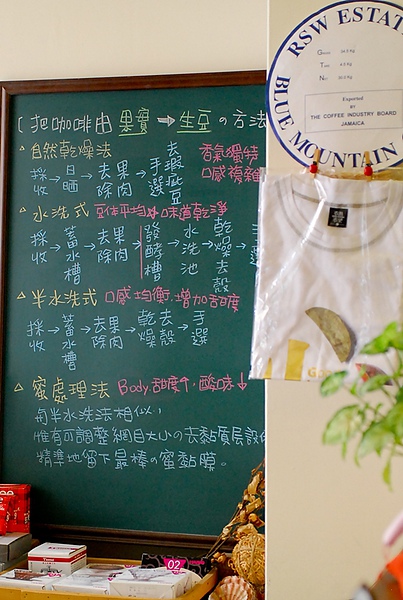 [ 把咖啡由果實→生豆の方法
△自然乾燥法 香氣獨特
口感複雜
採收→日晒→去果除肉→手選→去瑕疵豆
△水洗式 豆体平均,味道乾淨
採收→蓄水槽→去果除肉→發酵槽→水洗池→乾燥去殼→手
△半水洗式 口感均衡.增加甜度
採收→蓄水槽→去果除肉→乾燥→去殼→手選
△蜜處理法 Body.甜度↑,酸味↓
與半水洗法相似,
惟有可調整網目大小の去黏質层設
精準地留下最棒の蜜黏膜。
RSW ESTATE
BLUE MOUNTAIN CO
Gross
Tare
Net
Exported
BY
THE COFFEE INDUSTRY BOARD
JAMAICA
02